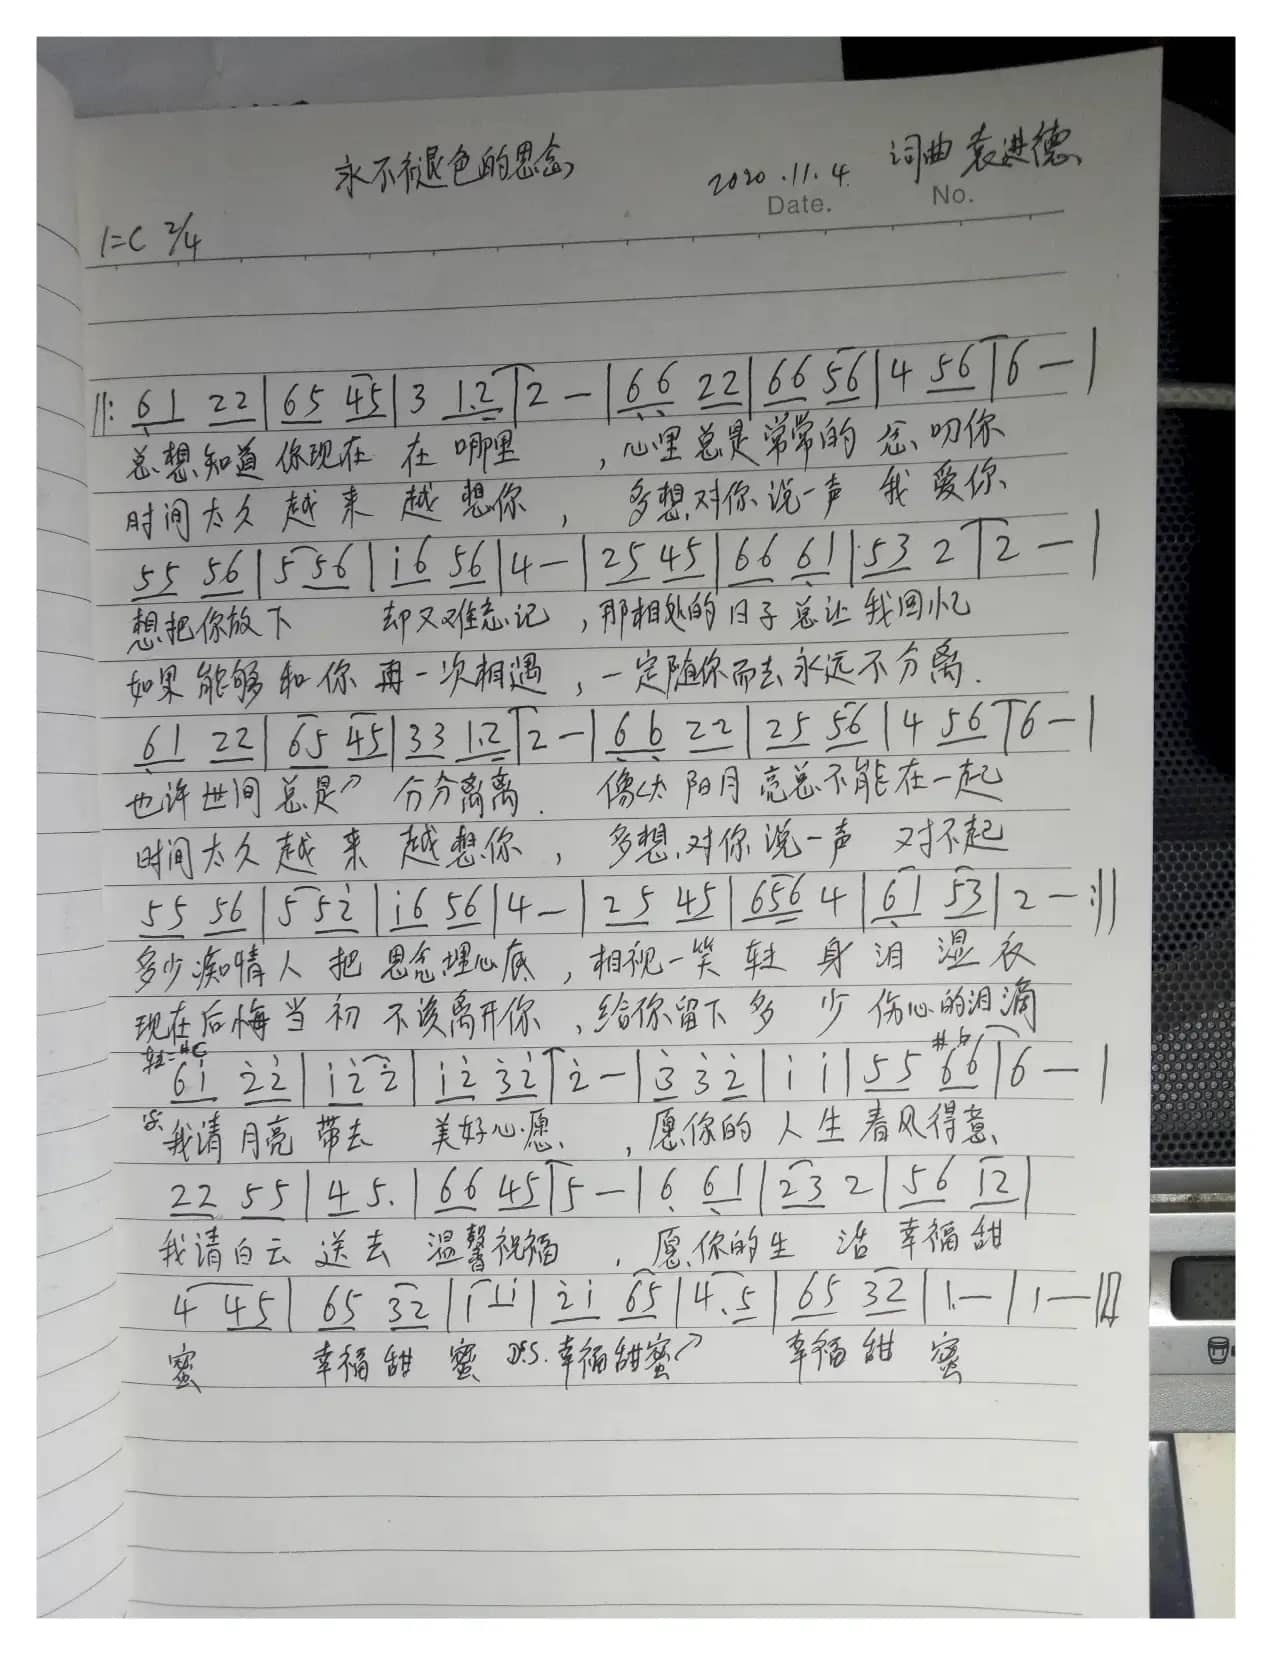 永不褪色的思念
2020.11.4 词曲 袁进德
Date. No.
1=C 2/4
‖: 6 1 2 2 | 6 5 4 5 | 3 1.2 | 2 — | 6 6 2 2 | 6 6 5 6 | 4 5 6 | 6 — |
总想知道你现在 在 哪里 ，心里总是常常的 念叨你
时间太久 越来 越 想你 ， 多想对你说一声 我 爱你
5 5 5 6 | 5 5 6 | i 6 5 6 | 4 — | 2 5 4 5 | 6 6 6 1 | 5 3 2 | 2 — |
想把你放下 却又难忘记 ，那相处的日子总让我回忆
如果能够和你 再一次相遇 ，一定随你而去永远不分离.
6 1 2 2 | 6 5 4 5 | 3 3 1.2 | 2 — | 6 6 2 2 | 2 5 5 6 | 4 5 6 | 6 — |
也许世间总是 分分离离. 像太阳月亮总不能在一起
时间太久越来 越想你 ， 多想对你说一声 对不起
5 5 5 6 | 5 5 2̇ | i 6 5 6 | 4 — | 2 5 4 5 | 6 5 6 4 | 6 1 5 3 | 2 — :‖
多少痴情人 把 思念埋心底 ，相视一笑 转 身 泪 湿 衣
现在后悔当初 不该离开你 ，给你留下多 少 伤心的泪滴
转=#C
6 i 2̇ 2̇ | i 2̇ 2̇ | i 2̇ 3̇ 2̇ | 2̇ — | 3̇ 3̇ 2̇ | i i | 5 5 6 6 | 6 — |
我请月亮 带去 美好心愿 ，愿你的人生春风得意
2 2 5 5 | 4 5. | 6 6 4 5 | 5 — | 6 6 1 | 2 3 2 | 5 6 1 2 |
我请白云 送去 温馨祝福 ， 愿你的生 活 幸福甜
4 4 5 | 6 5 3 2 | i i i | 2̇ i 6 5 | 4. 5 | 6 5 3 2 | 1. — | 1 — ‖
蜜 幸福甜 蜜 D.S. 幸福甜蜜 幸福 甜 蜜